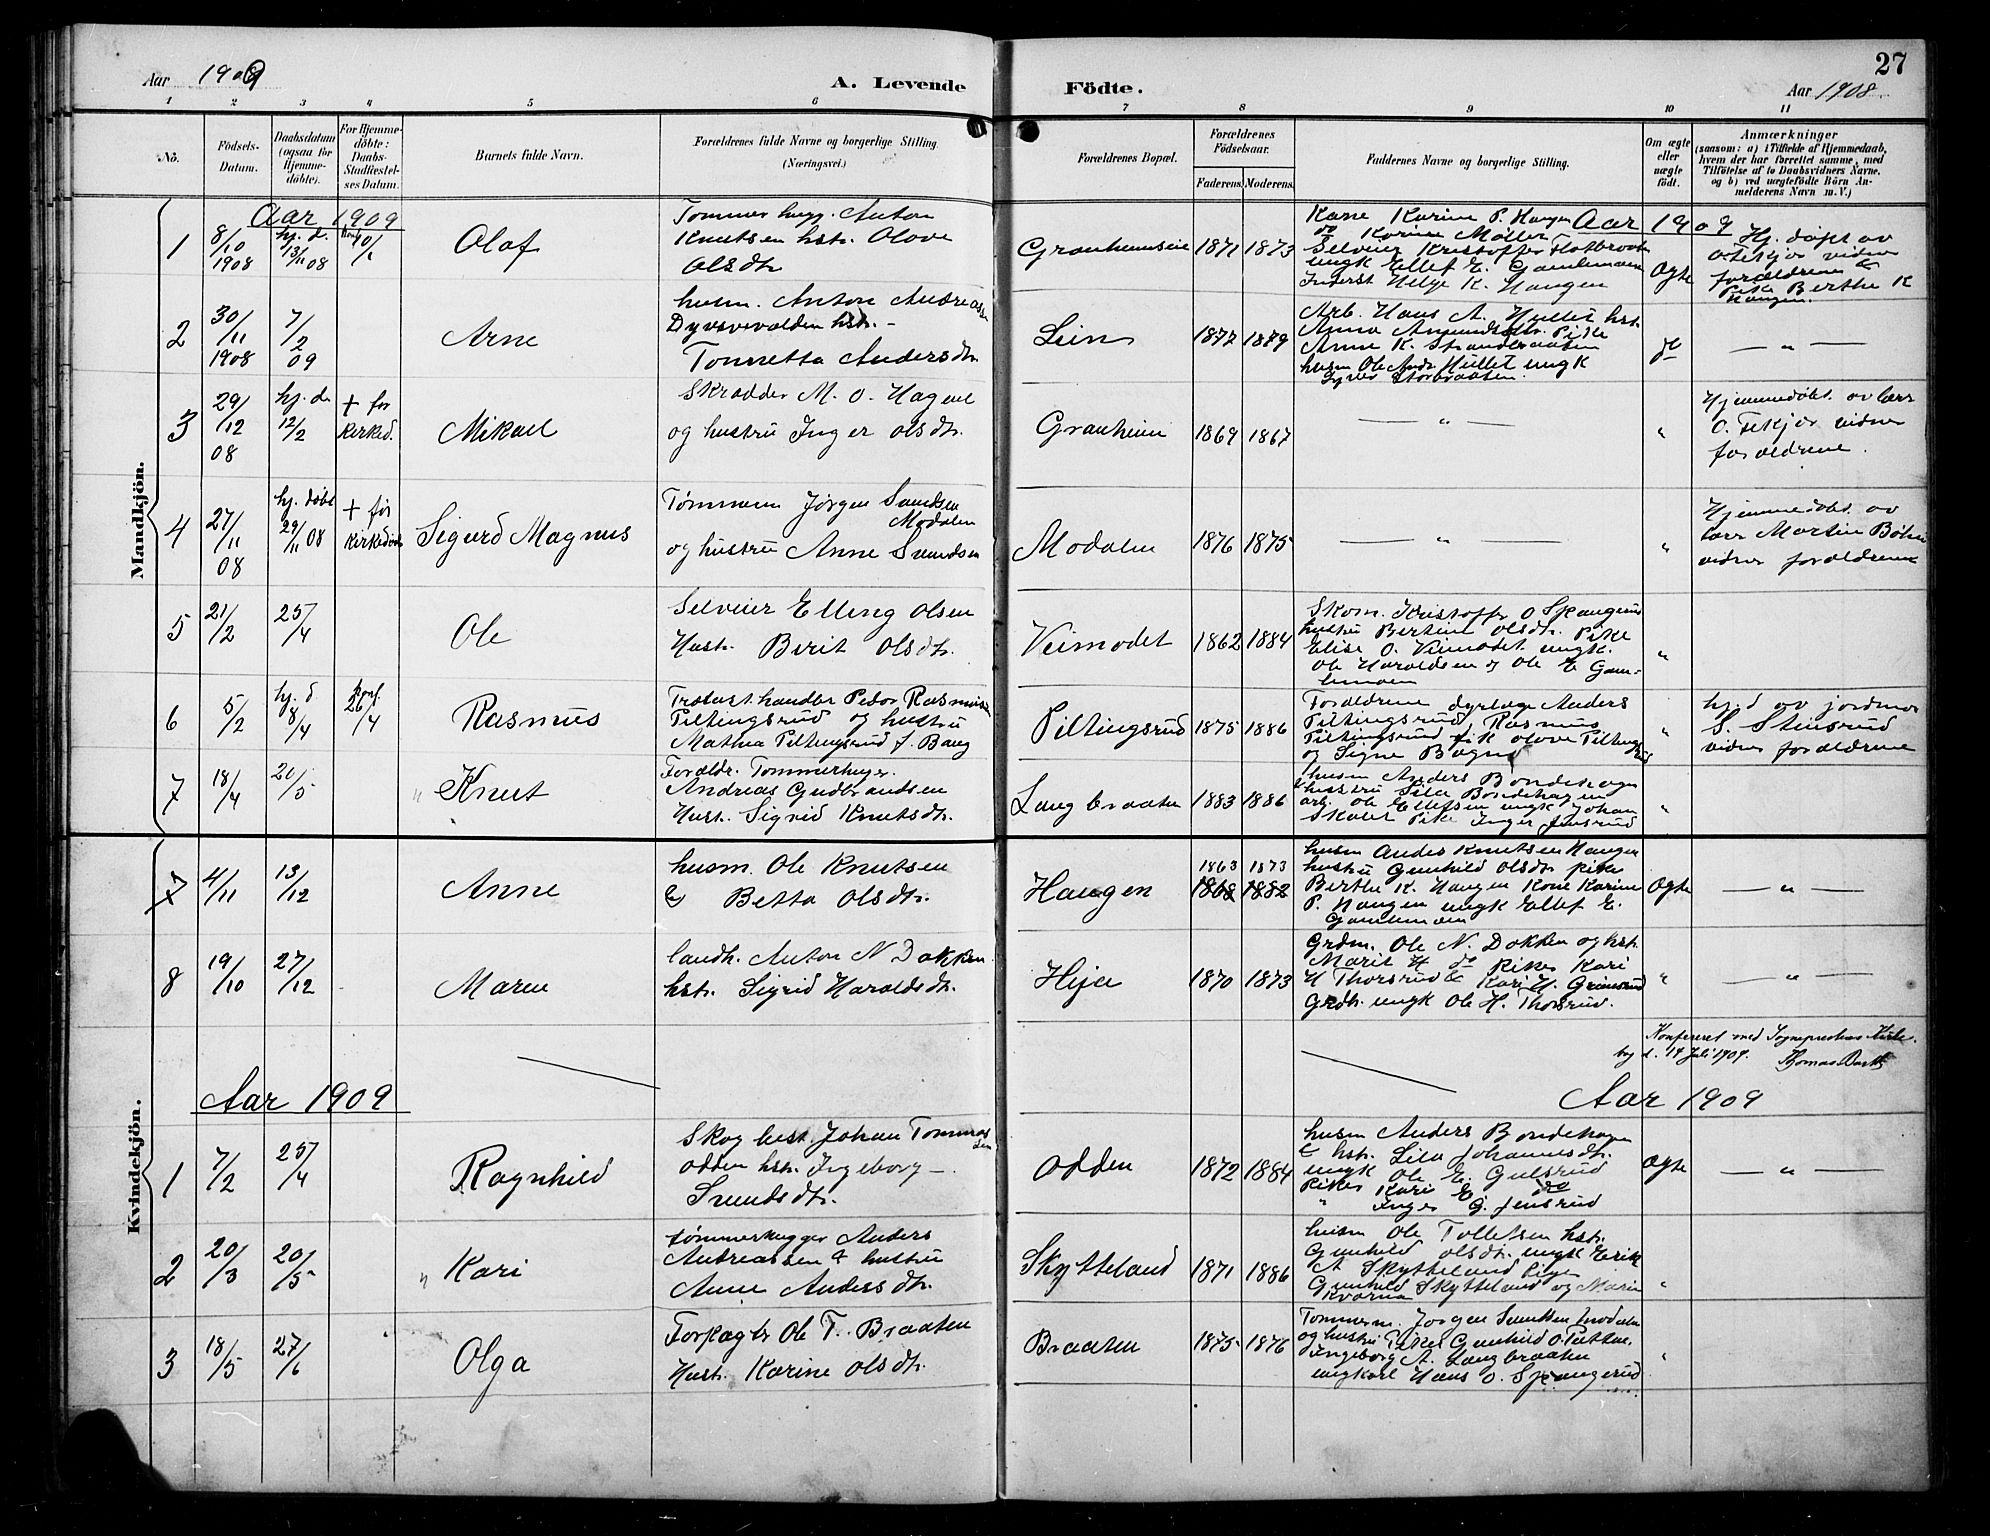 Aar 1909
A. Levende
Födte.
27
Aar 1908
1 2 3 4 5 6 7 8 9 10 11
No.
Födsels-Datum.
Daabsdatum (ogsaa for Hjemme-döbte).
For Hjemme-döbte: Daabs-Stadfæstel-ses Datum.
Barnets fulde Navn.
Forældrenes fulde Navne og borgerlige Stilling. (Næringsvei.)
Forældrenes Bopæl.
Forældrenes Födselsaar.
Faderens. Moderens.
Faddernes Navne og borgerlige Stilling.
Om ægte eller uægte födt.
Anmærkninger
(saasom: a) i Tilfælde af Hjemmedaab, hvem der har forrettet samme, med Tilföielse af to Daabsvidners Navne, og b) ved uægtefödte Börn An-melderens Navn m. V.)
Mandkjön.
Aar 1909
Aar 1909
1
8/10 1908
hj. d. 13/11 08
Konf 10/1
Olaf
Tømmerhugg. Anton
Knutsen hstr. Olove
Olsdtr.
1871 1873
Kone Karine P. Haugen
do Karine Møller
Selveier Kristoffer
ungk Ellef E.
Inderst Helge K. Haugen
Ægte
Hj. døpt av
O. Fekjør vidner
forældrene &
Pike Berthe K
Haugen.
2
30/11 1908
7/2 09
Arne
husm. Anton Andreas
hstr. -
Tonnetta Andersdtr.
Lien
1872 1879
Arb. Hans A. Hullet hst.
Anna Pike
Anne K.
husm Ole Andr. Hullet ungk
do
— " —
3
29/12 08
hj. d. 12/2
+ før kirked.
Mikael
Skrædder M. O. Hagene
og hustru Inger Olsdtr.
Granheim
1869 1867
— " —
"
Hjemmedøbt av lærer
O. Fekjør vidner
forældrene.
4
27/11 08
hj. døbt 29/11 08
+ før kirkedåb
Sigurd Magnus
Tømmerm Jørgen Svendsen
Modalen
og hustru Anne Svendsen
Modalen
1876 1875
— " —
"
Hjemmedøbt av
lærer Martin
vidner forældrene
5
21/2
25/4
Ole
Selveier Elling Olsen
Hust. Berit Olsdtr.
Veimodet
1862 1884
Skom. Kristoffer O
hustru Bertine Olsdtr. Pike
Elise O. Veimodet ungk.
Ole Haraldsen og Ole E
"
6
5/2
hj. d 8/4
Konf. 26/4
Rasmus
Trælasthandler Peder Rasmussen
Piltingsrud og hustru
Mathea Piltingsrud f. Bang
Piltingsrud
1875 1886
Forældrene dyrlæge Anders
Piltingsrud, Rasmus
Piltingsrud frk Olove
og Signe
"
hj.d av jordmor
S. Stensrud
vidner forældrene
7
18/4
20/5
" Knut
Forældr. Tømmerhugger
Andreas Gudbrandsen
Hust. Sigrid Knutsdtr.
Langbraaten
1883 1886
husm Anders Bondehagen
hustru Lila Bondehagen
arb. Ole Ellefsen ungk Johan
Pike Inger Jensrud
"
Kvindekjön.
7
4/11
13/12
Anne
husm. Ole Knutsen
& Betta Olsdtr.
Haugen
1863 1873
1868 1882
husm Anders Knutsen Haugen
hustru Gunhild Olsdtr Pike
Berthe K. Haugen Kone Karine
P. Haugen ungk Ellef E.
Ægte
— " —
8
19/10
27/12
Maren
landh. Anton N Dokken
hstr. Sigrid Haraldsdtr.
Heja
1870 1873
Grdm. Ole N. Dokken og hst.
Marit H do Piker Kari
H Thorsrud & Kari H. Grimsrud
Grdbr. ungk Ole H. Thorsrud.
"
— " —
Konfereret med Sogneprestens Kirke-
bog d. 14 Juli 1909. Thomas Barth
Aar 1909
Aar 1909
1
7/2
25/4
Ragnhild
Skogbest. Johan Tommas
sen
Odden hstr. Ingeborg -
Svendsdtr.
Odden
1872 1884
husm Anders Bondehagen
& hstr. Lila Johannesdtr.
ungk Ole E. Gulsrud
Piker Kari E. do
" Inger G. Jensrud
Ægte
— " —
2
20/3
20/5
" Kari
tømmerhugger Anders
Andreassen & hustru
Anne Andersdtr.
Skytteland
1871 1886
husm Ole Tollefsen hstr.
Gunhild Olsdtr. ungk Erik
A Skytteland piger
Gunhild Skytteland og Marie
"
3
18/5
27/6
Olga
Forpagter Ole T. Braaten
Hust. Karine Olsdtr.
Braaten
1875 1876
Tømmerm. Jørgen Svendsen Modalen
og hustru Piker Gunhild O.
Ingeborg A. Langbraaten
ungkarl Hans O.
"